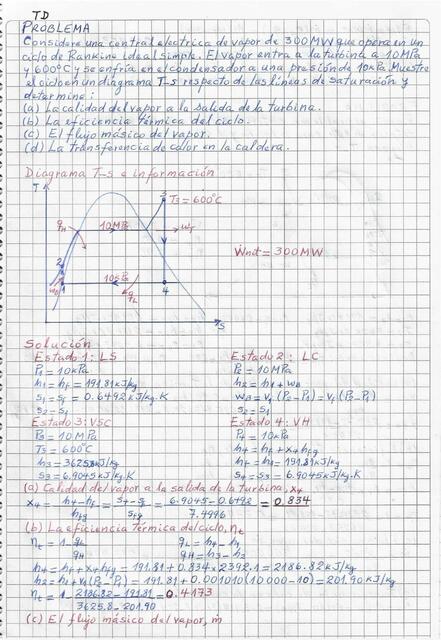 TD
PROBLEMA
Considere una central electrica de vapor de 300MW que opera en un
ciclo de Rankine ideal simple. El vapor entra a la turbina a 10MPa
y 600°C y se enfría en el condensador a una presión de 10kPa. Muestre
el ciclo en un diagrama T-s respecto de las líneas de saturación y
determine:
(a) La calidad del vapor a la salida de la turbina.
(b) La eficiencia térmica del ciclo.
(c) El flujo másico del vapor.
(d) La transferencia de calor en la caldera.
Diagrama T-s e información
T
3
T3 = 600°C
qH
10MPa
wT
Ẇnit = 300MW
2
1
4
qL
s
Solución
Estado 1: LS
P1 = 10kPa
h1 = hf = 191.81 kJ/kg
s1 = sf = 0.6492 kJ/kg.K
s2 = s1
Estado 2: LC
P2 = 10MPa
h2 = h1 + wB
wB = v1 (P2-P1) = vf (P2-P1)
s2 = s1
Estado 3: VSC
P3 = 10MPa
T3 = 600°C
h3 = 3625.8 kJ/kg
s3 = 6.9045 kJ/kg.K
Estado 4: VH
P4 = 10kPa
h4 = hf + x4 hfg
hf = h1 = 191.81 kJ/kg
s4 = s3 = 6.9045 kJ/kg.K
(a) Calidad del vapor a la salida de la turbina, x4
x4 = h4-hf/hfg = s4-sf/sfg = 6.9045-0.6492/7.4996 = 0.834
(b) La eficiencia térmica del ciclo, ηt
ηt = 1 - qL/qH
qL = h4 - h1
qH = h3 - h2
h4 = hf + x4 hfg = 191.81 + 0.834 x 2392.1 = 2186.82 kJ/kg
h2 = h1 + v1 (P2-P1) = 191.81 + 0.001010 (10000-10) = 201.90 kJ/kg
ηt = 1 - 2186.82 - 191.81/3625.8 - 201.90 = 0.4173
(c) El flujo másico del vapor, ṁ